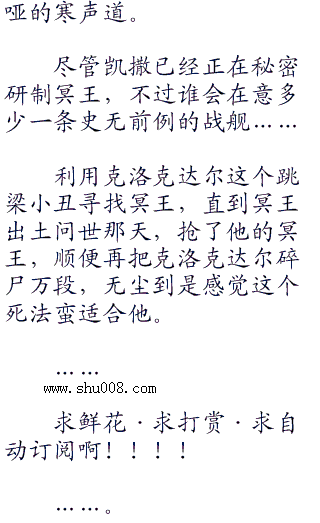 哑的寒声道。
尽管凯撒已经正在秘密
研制冥王，不过谁会在意多
少一条史无前例的战舰……
利用克洛克达尔这个跳
梁小丑寻找冥王，直到冥王
出土问世那天，抢了他的冥
王，顺便再把克洛克达尔碎
尸万段，无尘到是感觉这个
死法蛮适合他。
……
www.shu008.com
求鲜花·求打赏·求自
动订阅啊！！！！
……。